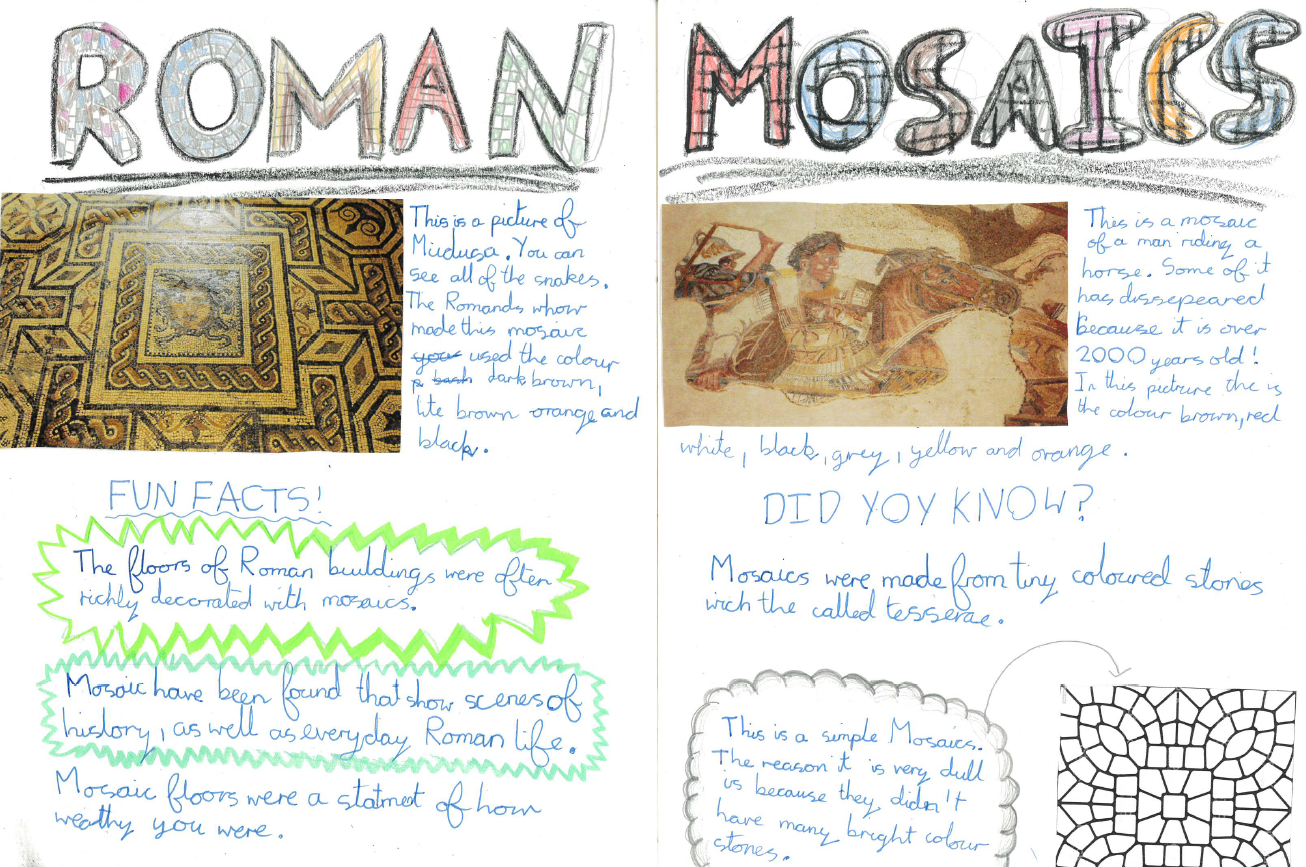 ROMAN MOSAICS
This is a picture of
Miudusa. You can
see all of the snakes.
The Romands whow
made this mosaic
used the colour
dark brown,
lite brown orange and
black.
FUN FACTS!
The floors of Roman buuldings were often
richly decorated with mosaics.
Mosaic have been found that show scenes of
history, as well as everyday Roman life.
Mosaic floors were a statmet of how
wealthy you were.
This is a mosaic
of a man riding a
horse. Some of it
has dissepeared
because it is over
2000 years old!
In this picture the is
the colour brown, red
white, black, grey, yellow and orange.
DID YOY KNOW?
Mosaics were made from tiny coloured stones
wich the called tesserae.
This is a simple Mosaics.
The reason it is very dull
is because they didn't
have many bright colour
stones.